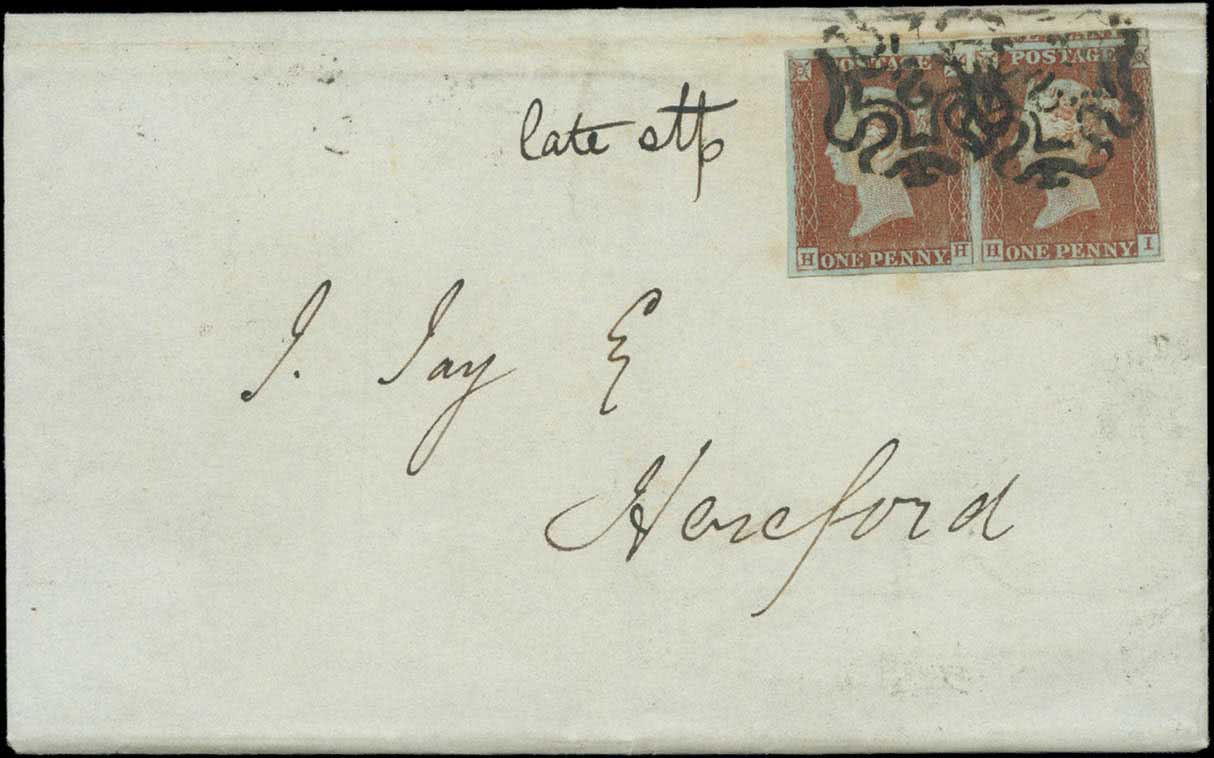 POSTAGE POSTAGE
late stp
H ONE PENNY. H H ONE PENNY. I
J. Jay E
Hereford